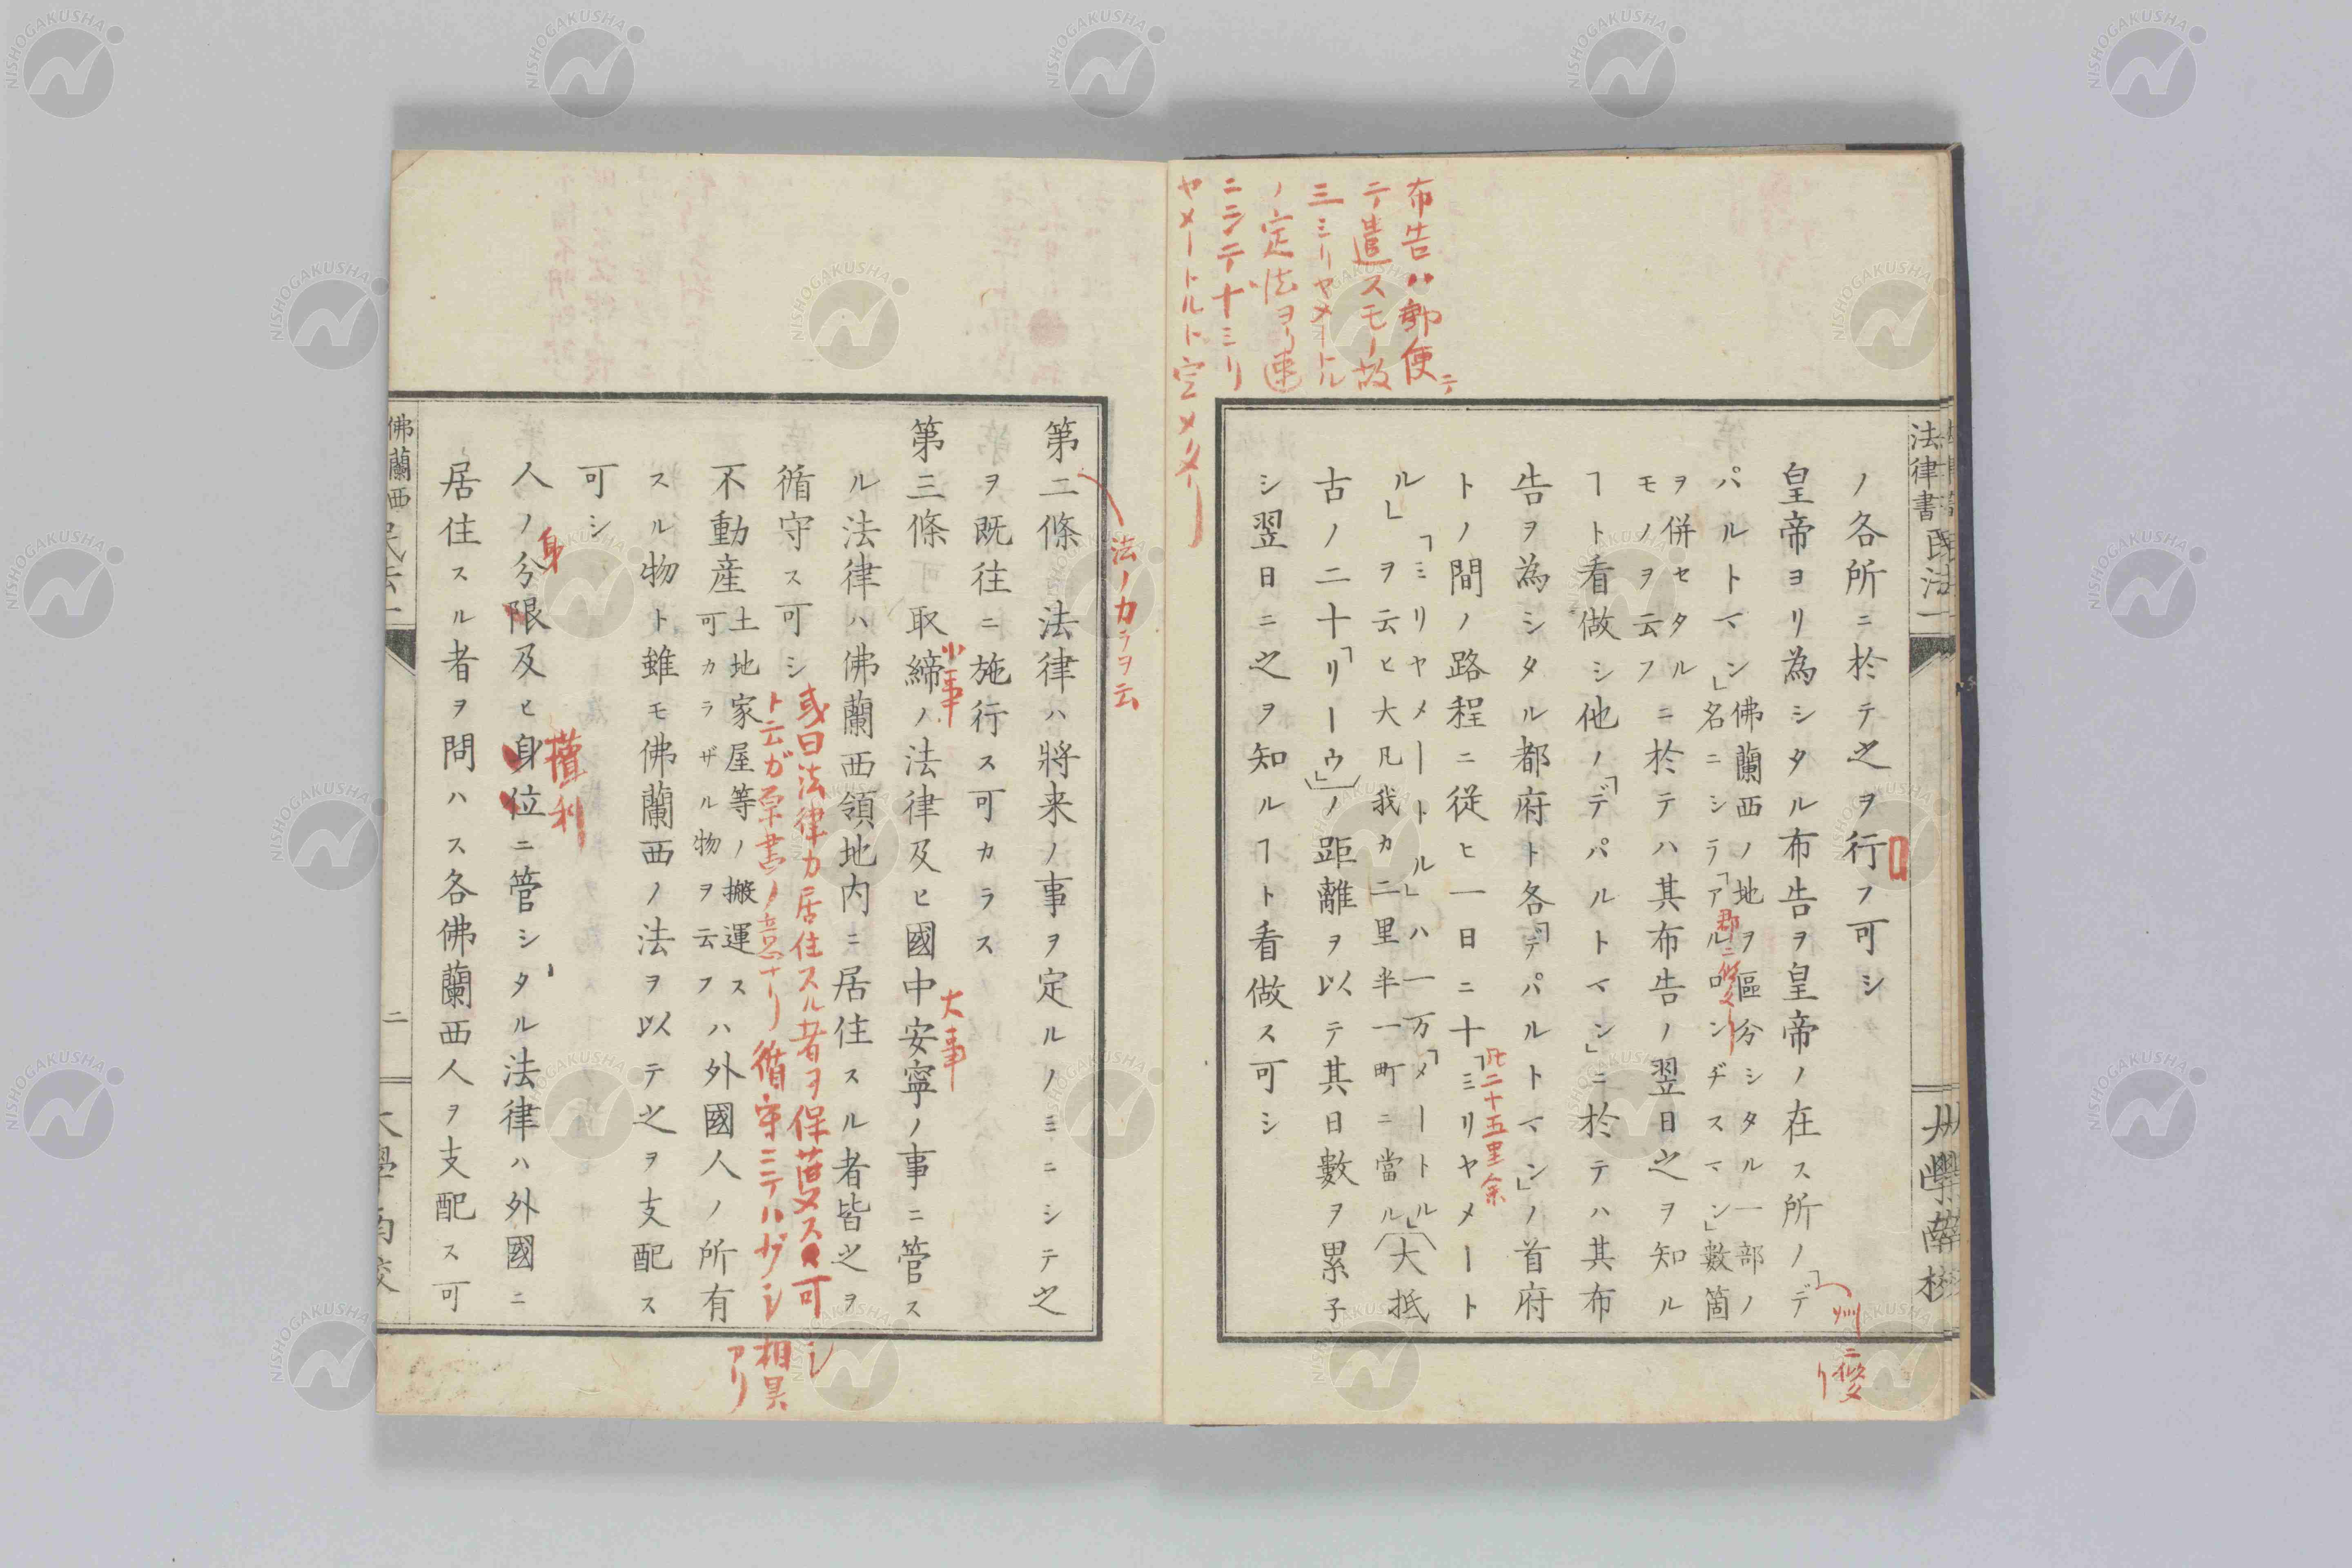 布告ハ郵便ニ
テ遣スモノ故
三ミリヤメートル
ノ定法ヨリ速
ニシテ十ミリ
ヤメートルト定メタリ
法律書民法一
大學南校
ノ各所ニ於テ之ヲ行フ可シ
皇帝ヨリ為シタル布告ヲ皇帝ノ在ス所ノ「デ
州ニ似タリ
パルトマン」佛蘭西ノ地ヲ區分シタル一部ノ
名ニシテ「アルロンヂスマン」數箇
郡ニ似タリ
ヲ併セタル
モノヲ云フニ於テハ其布告ノ翌日之ヲ知ル
ヿト看做シ他ノ「デパルトマン」ニ於テハ其布
告ヲ為シタル都府ト各「デパルトマン」ノ首府
トノ間ノ路程ニ従ヒ一日ニ十「ミリヤメート
凡二十五里余
ル」「ミリヤメートル」ハ一万「メートル」
ヲ云ヒ大凡我カ二里半一町ニ當ル(大抵
古ノ二十「リーウ」)ノ距離ヲ以テ其日數ヲ累子
シ翌日ニ之ヲ知ルヿト看做ス可シ
法ノ力ラヲ云
第二條 法律ハ將来ノ事ヲ定ルノミニシテ之
ヲ既往ニ施行ス可カラス
第三條 取締ノ法律及ヒ國中安寧ノ事ニ管ス
小事
大事
ル法律ハ佛蘭西領地内ニ居住スル者皆之ヲ
循守ス可シ
或曰法律カ居住スル者ヲ保護ス可シ
ト云ガ原書ノ意ナリ循守ニテハ少シ相異
アリ
不動産土地家屋等ノ搬運ス
可カラザル物ヲ云フハ外國人ノ所有
スル物ト雖モ佛蘭西ノ法ヲ以テ之ヲ支配ス
可シ
人ノ分限及ヒ身位ニ管シタル法律ハ外國ニ
身
權利
居住スル者ヲ問ハス各佛蘭西人ヲ支配ス可
佛蘭西民法一
二
大學南校
NISHOGAKUSHA